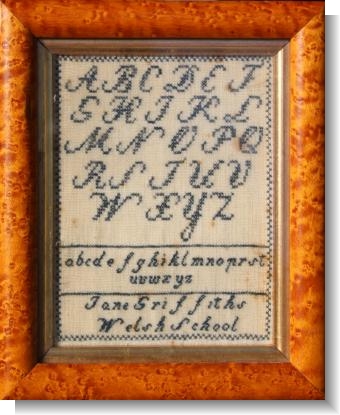 A B C D E F
G H I K L
M N O P Q
R S T U V
W X Y Z
abcdefghiklmnoprst
uvwxyz
Jane Griffiths
Welsh School